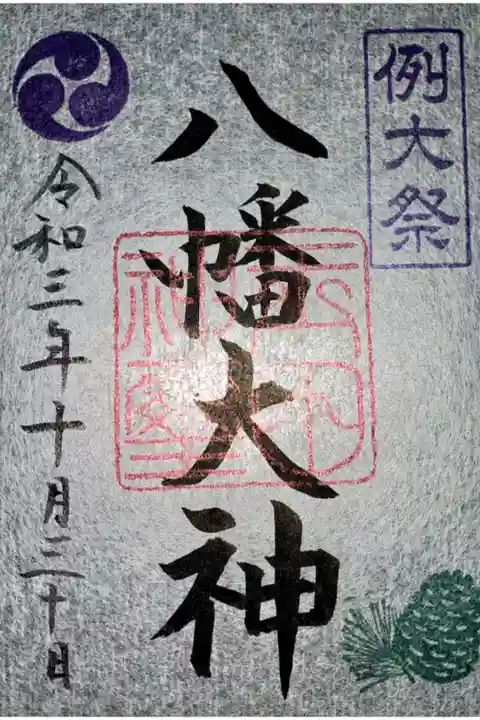 例大祭
八幡大神
令和三年十月三十日